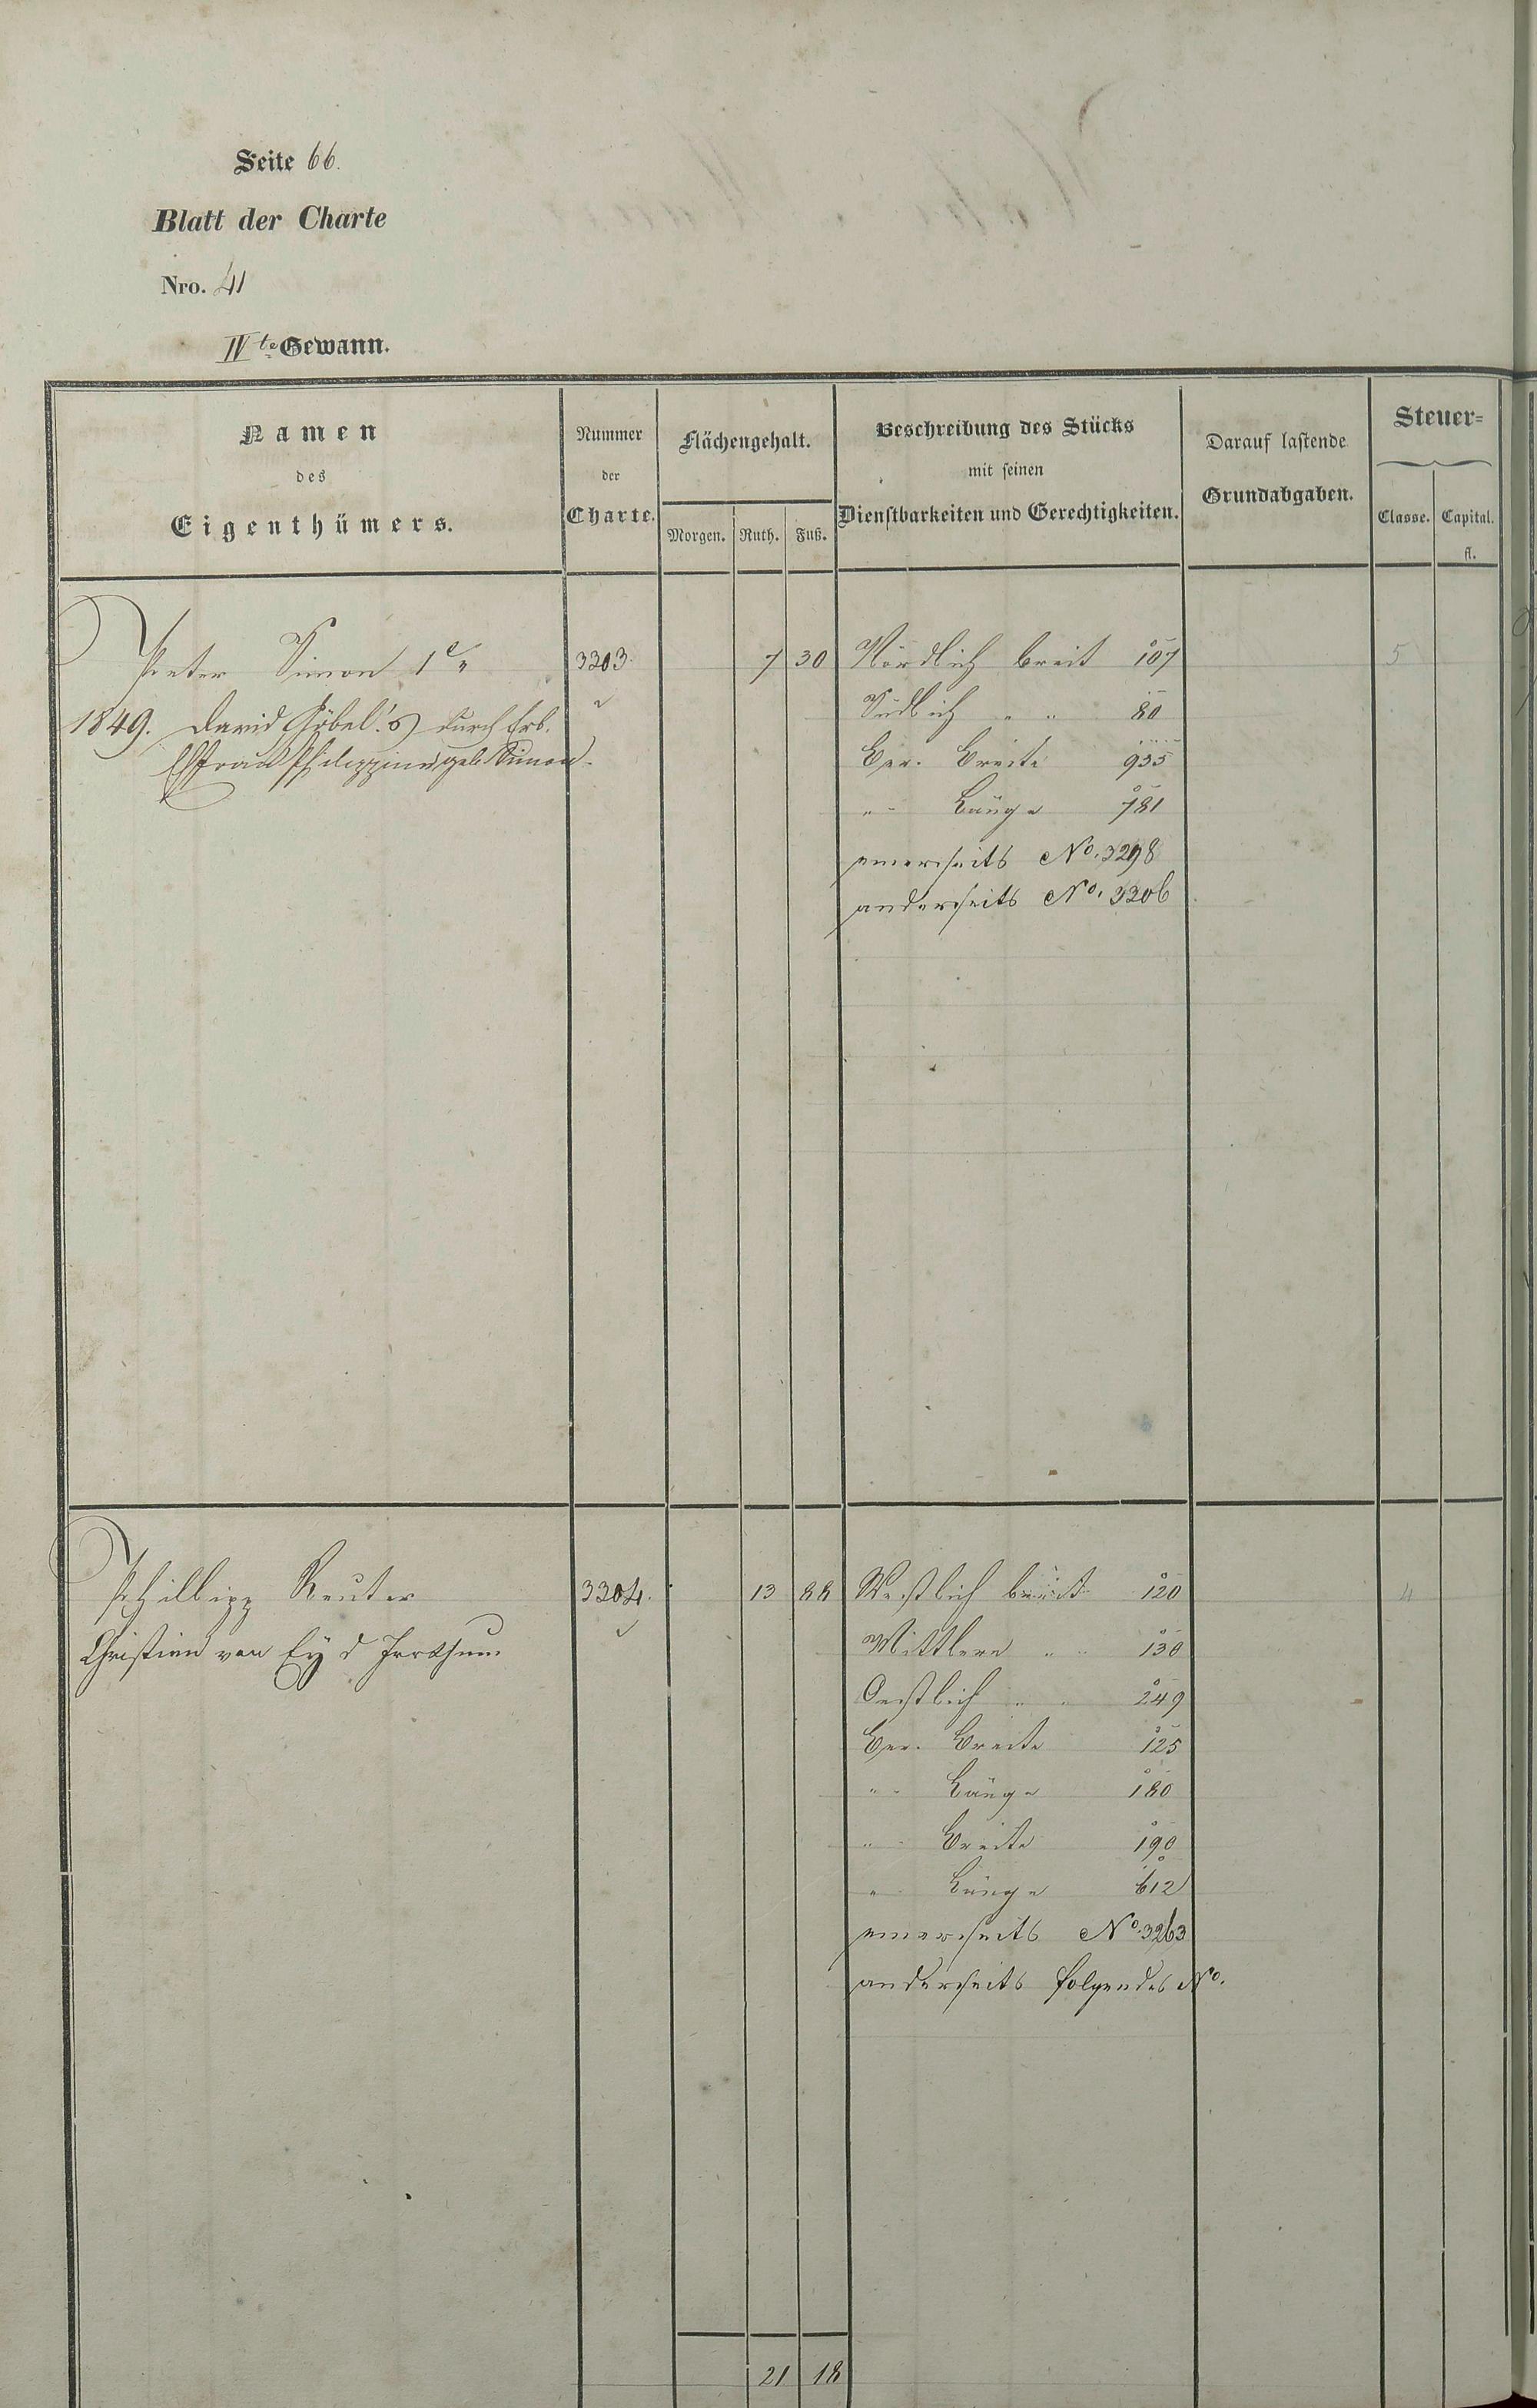 Seite 66.
Blatt der Charte
Nro. 41
IVte Gewann.
Namen
des
Eigenthümers.
Nummer
der
Charte.
Flächengehalt.
Morgen. Ruth. Fuß.
Beschreibung des Stücks
mit seinen
Dienstbarkeiten und Gerechtigkeiten.
Darauf lastende
Grundabgaben.
Steuer=
Classe. Capital.
fl.
Peter Simon 1r 3303. 7 30 Nördlich breit 107 5
1849. David Göbel's durch Erb. Südlich " " 80
Ehfrau Philippine geb. Simon. Ber. Breite 935
" " Länge 781
einerseits No. 3298
anderseits No. 3306
Phillipp Reuter 3304. 13 88 Westlich breit 120 4
Christian von Ey d Irrthum Mittlere " " 130
Oestlich " " 249
Ber. Breite 125
" " Länge 180
" " Breite 190
" " Länge 612
einerseits No. 3263
anderseits folgendes No.
21 18